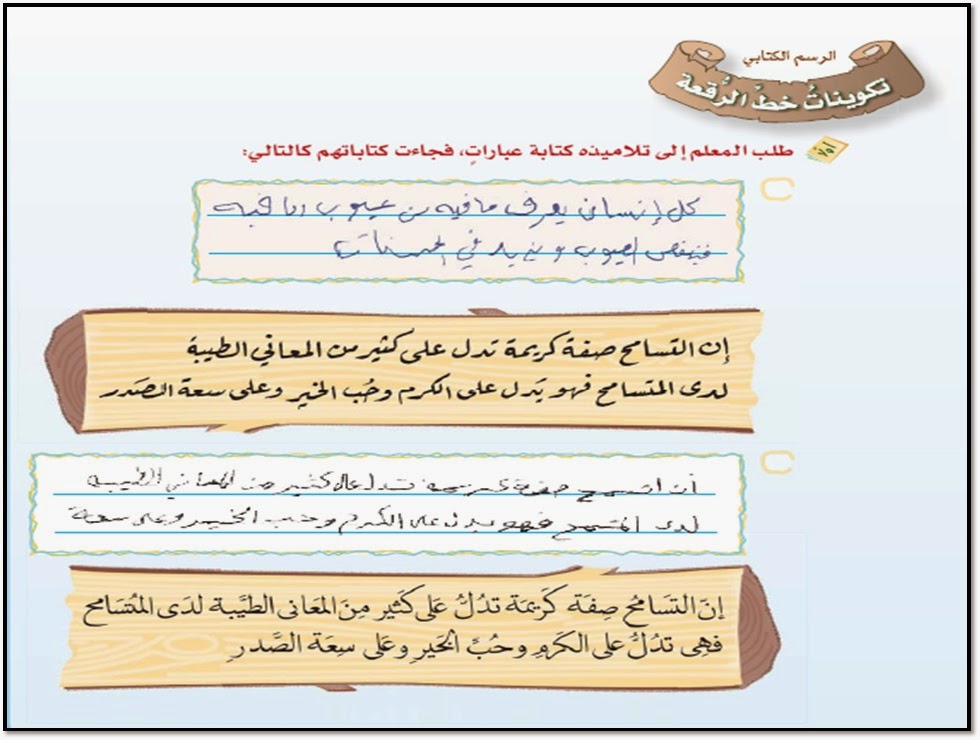 الرسم الكتابي
تكويناتُ خطِّ الرُّقعة
أولاً
طلب المعلم إلى تلاميذه كتابة عباراتٍ، فجاءت كتاباتهم كالتالي:
كل إنسان يعرف ما فيه من عيوب وما فيه
فينقص العيوب ويزيد في الحسنات
إن التسامح صفة كريمة تدل على كثير من المعاني الطيبة
لدى المتسامح فهو يَدل على الكرم وحُب الخير وعلى سعة الصَدر
أن التسمح صفة كريمة تدل عال كثير من المعاني الطيبة
لدى المتسمح فهو يدل على الكرم وحب الخير وعلى سعة
إنَ التسَامحُ صِفَة كَريمَة تدُلُ عَلى كَثير مِنَ المعَانى الطيَّبة لدَى المتُسَامح
فهِى تدُلُ على الكَرمِ وحُبَّ الخَيرِ وعَلى سِعَة الصَّدرِ